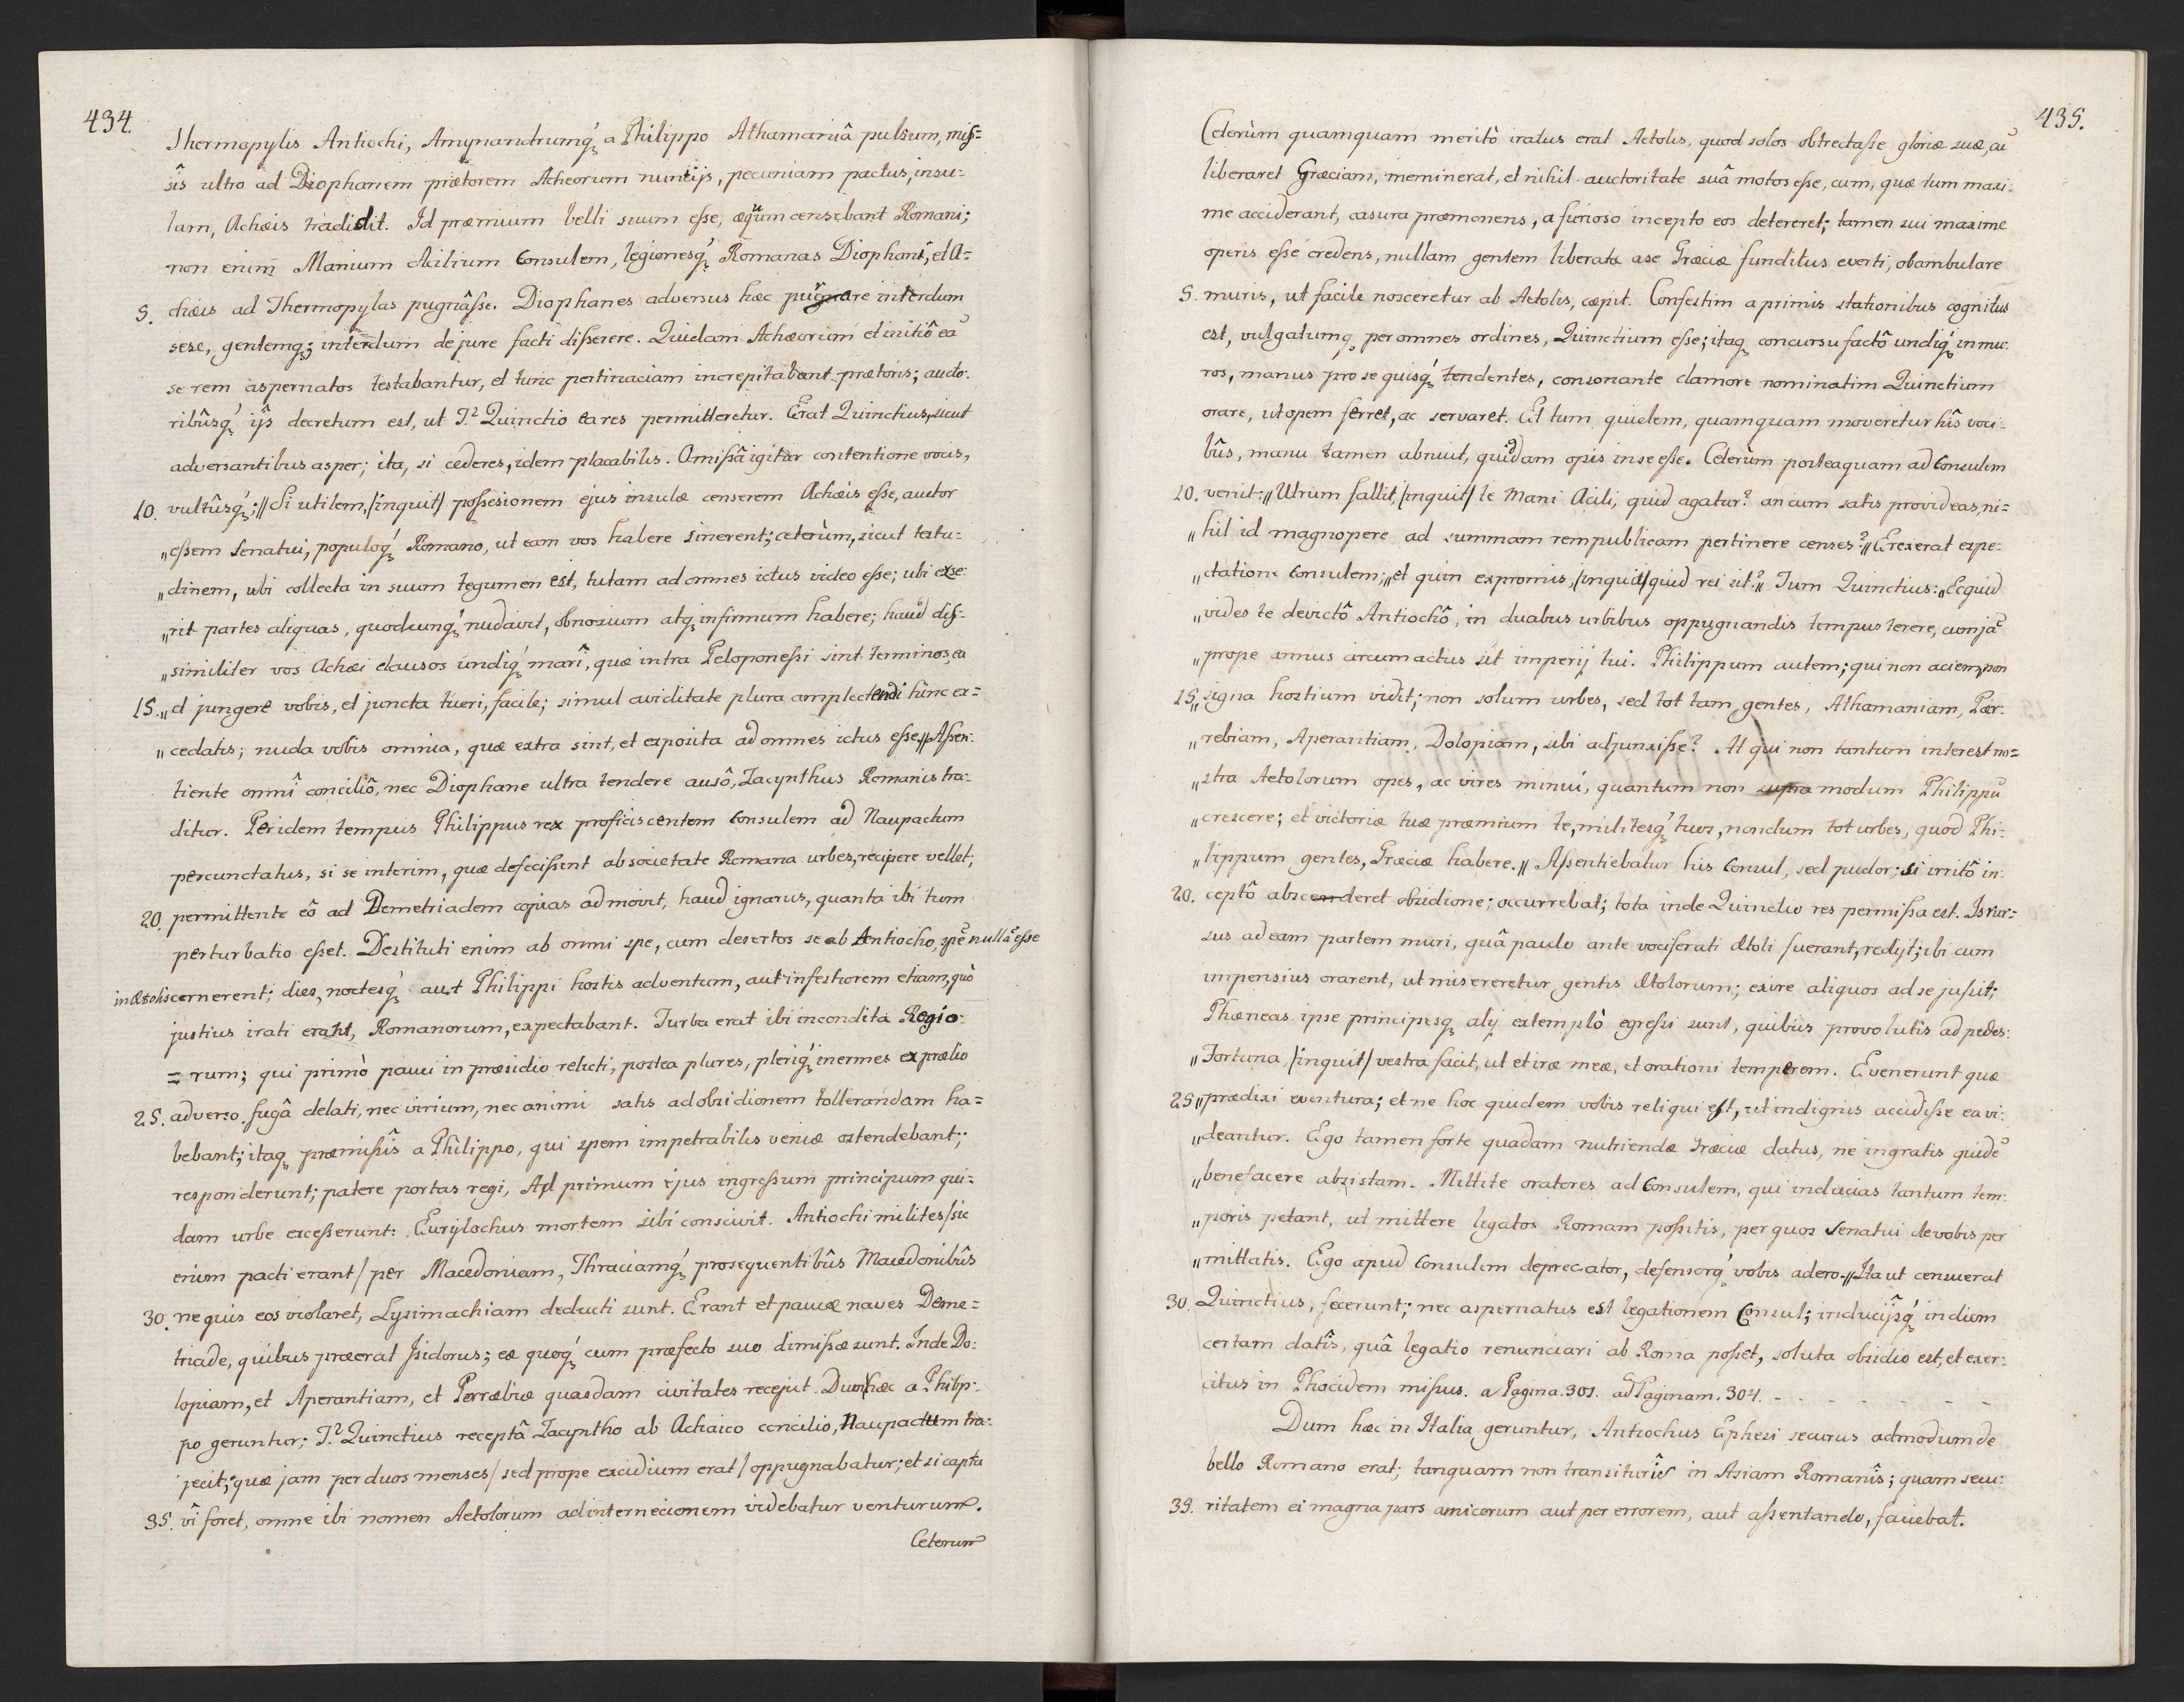 434.
Thermopylis Antiochi, Amynandrumq́ꝫ a Philippo Athamaniâ pulsum, mis=
sîs ultro ad Diophanem prætorem Acheorum nuntijs, pecuniam pactus, insu-
lam, Achæis tradidit. Id præmium belli suum esse, æquum censebant Romani;
non enim Manium Acilium Consulem, legionesq́ꝫ Romanas Diophani, et A=
5. chæis ad Thermopylas pugnâsse. Diophanes adversus hæc purgare interdum
sese, gentemqꝫ; interdum de jure facti disserere. Quidam Achæorum et initiô eā
se rem aspernatos testabantur, et tunc pertinaciam increpitabant prætoris; aucto-
ribûsq́ꝫ ijs decretum est, ut T.² Quinctio ea res permitteretur. Erat Quinctius, sicut
adversantibus asper; ita, si cederes, idem placabilis. Omissâ igitur contentione vocis,
10. vultûsq́ꝫ; „Si utilem, /inquit/ possesionem ejus insulæ censerem Achæis esse, auctor
„essem Senatui, populoq́ꝫ Romano, ut eam vos habere sinerent; ceterùm, sicut testu-
„dinem, ubi collecta in suum tegumen est, tutam ad omnes ictus video esse; ubi exse-
„rit partes aliquas, quodcunq́ꝫ nudavit, obnoxium atqꝫ infirmum habere; haud dis-
„similiter vos Achæi clausos undiq́ꝫ marî, quæ intra Peloponessi sint terminos, ea
15. „et jungere vobis, et juncta tueri, facile; simul aviditate plura amplectendi hinc ex=
„cedatis; nuda vobis omnia, quæ extra sint, et exposita ad omnes ictus esse„ Assen-
tiente omnî conciliô, nec Diophane ultra tendere ausô, Zacynthus Romanis tra-
ditur. Per idem tempus Philippus rex proficiscentem Consulem ad Naupactum
percunctatus, si se interim, quæ defecissent ab societate Romana urbes, recipere vellet;
20. permittente eô ad Demetriadem copias admovit, haud ignarus, quanta ibi tum
perturbatio esset. Destituti enim ab omni spe, cum desertos se ab Antiocho, spē nullā esse
in Ætolis cernerent; dies, noctesq́ꝫ aut Philippi hostis adventum, aut infestiorem etiam, quò
justius irati erant, Romanorum, expectabant. Turba erat ibi incondita Regio-
=rum; qui primò pauci in præsidio relicti, postea plures, pleriq́ꝫ inermes ex prælio
25. adverso fugâ delati, nec virium, nec animi satis ad obsidionem tollerandam ha=
bebant; itaqꝫ præmissîs a Philippo, qui spem impetrabilis veniæ ostendebant;
responderunt; patere portas regi, Ad primum ejus ingressum principum qui-
dam urbe excesserunt: Eurylochus mortem sibi conscivit. Antiochi milites /sic
enim pacti erant/ per Macedoniam, Thraciamq́ꝫ prosequentibûs Macedonibûs
30. ne quis eos violaret, Lysimachiam deducti sunt. Erant et paucæ naves Deme=
triade, quibus præerat Isidorus; eæ quoq́ꝫ cum præfecto suo dimissæ sunt. Inde Do-
lopiam, et Aperantiam, et Perræbiæ quasdam civitates recepit. Dum hæc a Philip-
po geruntur; T.² Quinctius receptâ Zacyntho ab Achaico concilio, Naupactum tra-
jecit; quæ jam per duos menses /sed prope excidium erat/ oppugnabatur; et si capta
35. vî foret, omne ibi nomen Aetolorum ad internecionem videbatur venturum.
Ceterum
435.
Ceterùm quamquam meritò iratus erat Aetolis, quod solos obtrectasse gloriæ suæ, cū
liberaret Græciam, meminerat, et nihil auctoritate suâ motos esse, cum, quæ tum maxi-
me acciderant, casura præmonens, a furioso incepto eos detereret; tamen sui maxime
operis esse credens, nullam gentem liberatæ a se Græciæ funditus everti, obambulare
5. muris, ut facile nosceretur ab Aetolis, cæpit. Confestim a primis stationibus cognitus
est, vulgatumqꝫ per omnes ordines, Quinctium esse; itaqꝫ concursu factô undiq́ꝫ in mu-
ros, manus pro se quisq́ꝫ tendentes, consonante clamore nominatim Quinctium
orare, ut opem ferret, ac servaret. Et tum quidem, quamquam moveretur hîs voci-
bûs, manu tamen abnuit, quidquam opis in se esse. Ceterùm posteaquam ad Consulem
10. venit: „Utrum fallit, /inquit/ te Mani Acili, quid agatur? an cum satis provideas, ni=
„hil id magnopere ad summam rempublicam pertinere censes?„ Erexerat expe-
„ctatione Consulem; „et quin expromis, /inquit/ quid rei sit?„ Tum Quinctius: „Ecquid
„vides te devictô Antiochô, in duabus urbibus oppugnandis tempus terere, cum jā
„prope annus circumactus sit imperij tui. Philippum autem; qui non aciem, non
15. „signa hostium vidit; non solum urbes, sed tot tam gentes, Athamaniam, Pær-
„rebiam, Aperantiam, Dolopiam, sibi adjunxisse? At qui non tantum interest no=
„stra Aetolorum opes, ac vires minui, quantum non supra modum Philippū
„crescere; et victoriæ tuæ præmium te, militesq́ꝫ tuos, nondum tot urbes, quod Phi-
„lippum gentes, Græciæ habere.„ Assentiebatur his Consul, sed pudor; si irritô in-
20. ceptô abscederet obsidione; occurrebat; tota inde Quinctio res permissa est. Is rur=
sus ad eam partem muri, quâ paulo ante vociferati Ætoli fuerant, redijt; ibi cum
impensius orarent, ut misereretur gentis Ætolorum; exire aliquos ad se jussit;
Phæneas ipse principesqꝫ alij extemplò egressi sunt, quibus provolutîs ad pedes:
„Fortuna, /inquit/ vestra facit, ut et iræ meæ, et orationi temperem. Evenerunt quæ
25. „prædixi eventura; et ne hoc quidem vobis reliqui est, ut indignis accidisse ea vi-
„deantur. Ego tamen sorte quadam nutriendæ Græciæ datus, ne ingratis quidē
„benefacere absistam. Mittite oratores ad Consulem, qui inducias tantum tem-
„poris petant, ut mittere legatos Romam possitis, per quos Senatui de vobis per
„mittatis. Ego apud Consulem deprecator, defensorq́ꝫ vobis adero.„ Ita ut censuerat
30. Quinctius, fecerunt; nec aspernatus est legationem Consul; inducijsq́ꝫ in diem
certam datîs, quâ legatio renunciari ab Roma posset, soluta obsidio est, et exer-
citus in Phocidem missus. a Pagina. 301. ad Paginam. 304. - - - - - -
Dum hæc in Italia geruntur, Antiochus Ephesi securus admodum de
bello Romano erat; tanquam non transiturîs in Asiam Romanîs; quam secu-
35. ritatem ei magna pars amicorum aut per errorem, aut assentando, faciebat.